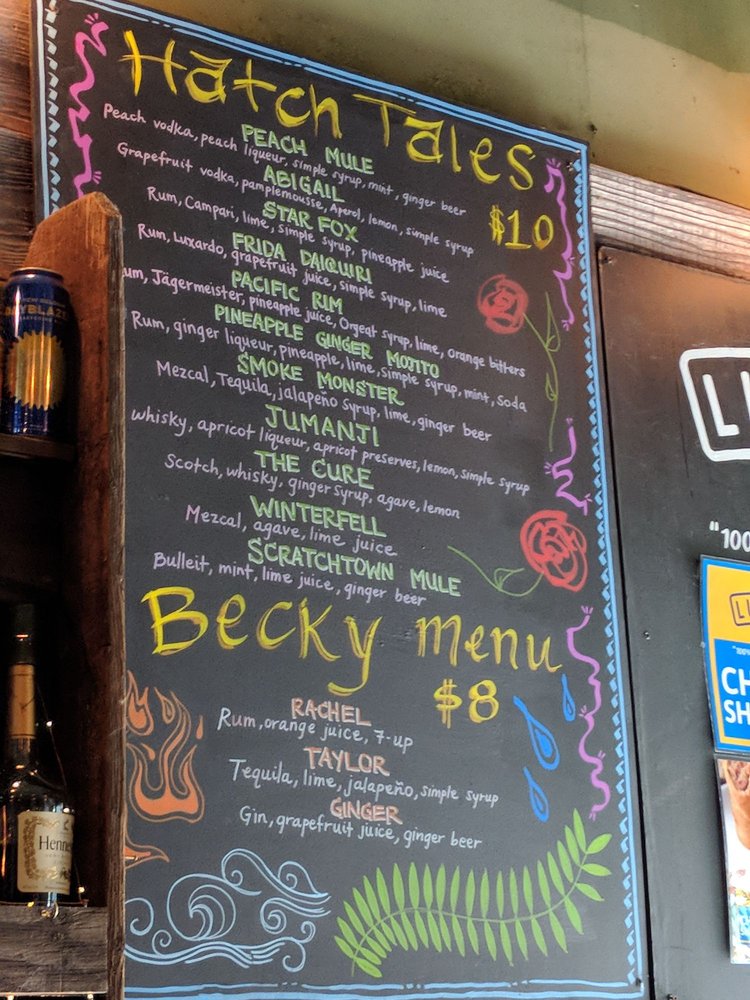 Hatch Tales
$10
PEACH MULE
Peach vodka, peach liqueur, simple syrup, mint, ginger beer
ABIGAIL
Grapefruit vodka, pamplemousse, Aperol, lemon, simple syrup
STAR FOX
Rum, Campari, lime, simple syrup, pineapple juice
FRIDA DAIQUIRI
Rum, Luxardo, grapefruit juice, simple syrup, lime
PACIFIC RIM
um, Jägermeister, pineapple juice, Orgeat syrup, lime, orange bitters
PINEAPPLE GINGER MOJITO
Rum, ginger liqueur, pineapple, lime, simple syrup, mint, Soda
SMOKE MONSTER
Mezcal, Tequila, jalapeño syrup, lime, ginger beer
JUMANJI
whisky, apricot liqueur, apricot preserves, lemon, simple syrup
THE CURE
Scotch, whisky, ginger syrup, agave, lemon
WINTERFELL
Mezcal, agave, lime juice
SCRATCHTOWN MULE
Bulleit, mint, lime juice, ginger beer
Becky menu
$8
RACHEL
Rum, orange juice, 7-up
TAYLOR
Tequila, lime, jalapeño, simple syrup
GINGER
Gin, grapefruit juice, ginger beer
Henne
LI
"100
LI
"100%
CH
SH